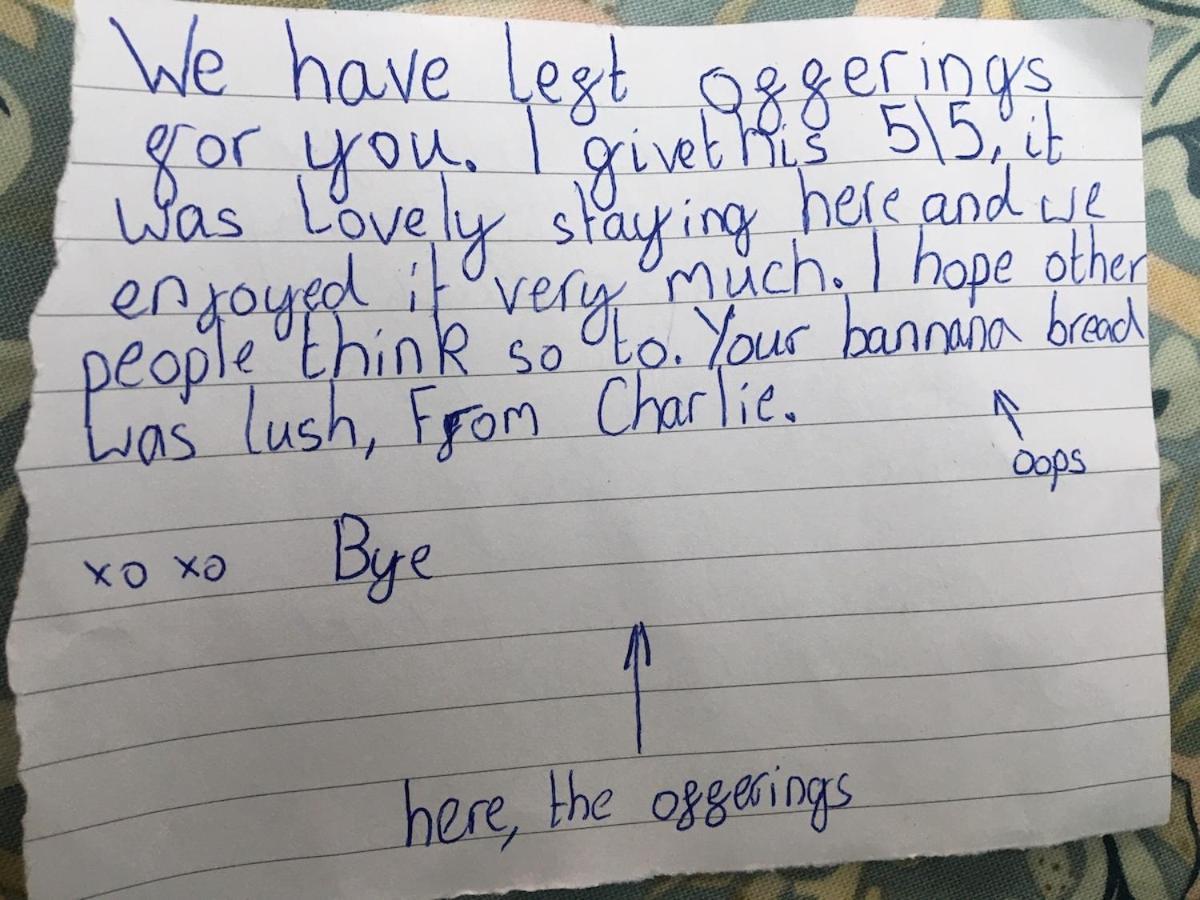 We have left offerings
for you. I give this 5\5, it
was Lovely staying here and we
enjoyed it very much. I hope other
people think so to. Your bannana bread
was lush, From Charlie.
↑
oops
xo xo Bye
↑
here, the offerings